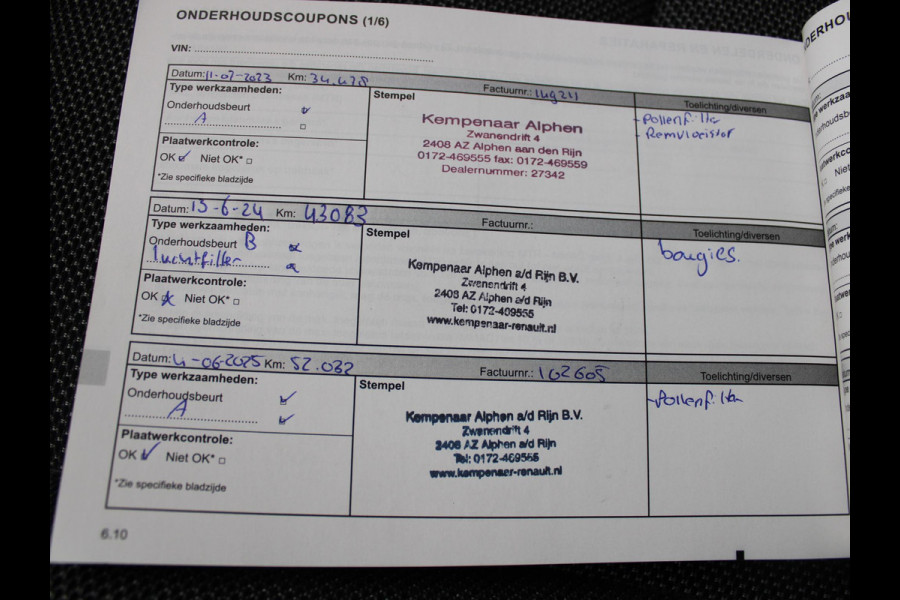 ONDERHOUDSCOUPONS (1/6)
VIN:
Datum: 11-07-2023 Km: 34.478 Factuurnr.:
Type werkzaamheden:
Stempel
Toelichting/diversen
Onderhoudsbeurt
A
Kempenaar Alphen
Zwanendrift 4
2408 AZ Alphen aan den Rijn
0172-469555 fax: 0172-469559
Dealernummer: 27342
-Pollenfilter
-Remvloeistof
Plaatwerkcontrole:
OK Niet OK*
*Zie specifieke bladzijde
Datum: 13-6-24 Km: 43083 Factuurnr.:
Type werkzaamheden:
Stempel
Toelichting/diversen
Onderhoudsbeurt B
Luchtfilter
Kempenaar Alphen a/d Rijn B.V.
Zwanendrift 4
2408 AZ Alphen a/d Rijn
Tel: 0172-469555
www.kempenaar-renault.nl
bougies.
Plaatwerkcontrole:
OK Niet OK*
*Zie specifieke bladzijde
Datum: 4-06-2025 Km: 52.032 Factuurnr.: 102605
Type werkzaamheden:
Stempel
Toelichting/diversen
Onderhoudsbeurt
A
Kempenaar Alphen a/d Rijn B.V.
Zwanendrift 4
2408 AZ Alphen a/d Rijn
Tel: 0172-469555
www.kempenaar-renault.nl
-Pollenfilter
Plaatwerkcontrole:
OK Niet OK*
*Zie specifieke bladzijde
6.10